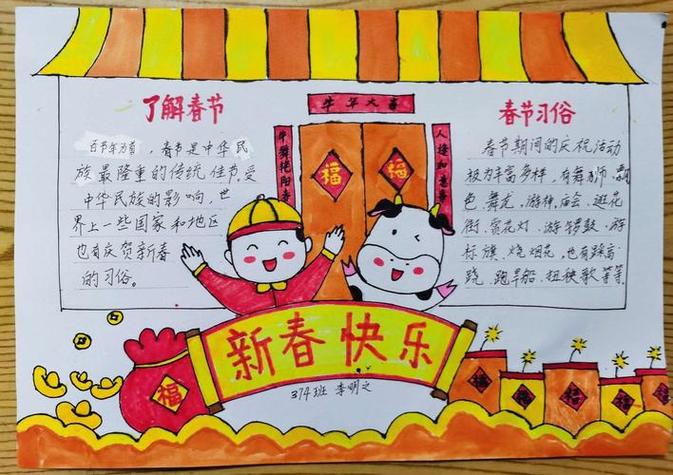 了解春节
百节年为首，春节是中华民
族最隆重的传统佳节受
中华民族的影响，世
界上一些国家和地区
也有庆贺新春
的习俗。
牛年大喜
牛舞艳阳春
人逢如意喜
福
福
春节习俗
春节期间的庆祝活动
极为丰富多样，有舞狮、飘
色、舞龙、游神、庙会、逛花
街、赏花灯、游锣鼓、游
标旗、烧烟花、也有踩高
跷、跑旱船、扭秧歌等等
新春快乐
374班 李明之
福
福
福
福
福